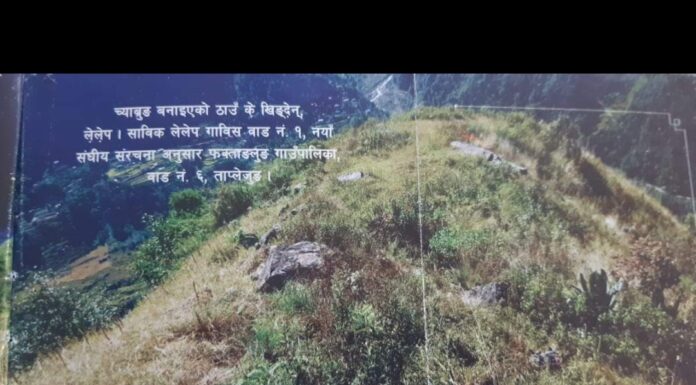 च्याब्रुङ बनाइएको ठाउँ के खिङ्देन,
लेलेप । साविक लेलेप गाविस वाड नं. १, नयाँ
संघीय संरचना अनुसार फक्ताङलुङ गाउँपालिका,
वाड नं. ६, ताप्लेजुङ ।